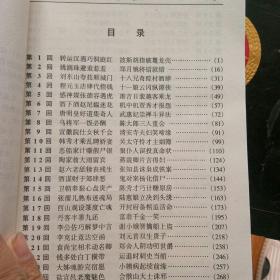 目录
第1回 转运汉遇巧洞庭红 波斯胡指破鼍龙壳 (1)
第2回 姚滴珠避羞惹羞 郑月娥将错就错
第3回 刘东山夸技顺城门 十八兄奇踪村酒肆
第4回 程元玉店肆代偿钱 十一娘云冈纵谭侠
第5回 感神媒张德容遇虎 凑吉日裴越客乘龙
第6回 酒下酒赵尼媪迷花 机中机贾秀才报怨
第7回 唐明皇好道集奇人 武惠妃崇禅斗异法
第8回 乌将军一饭必酬 陈大郎三人重会
第9回 宣徽院仕女秋千会 清安寺夫妇笑啼缘
第10回 韩秀才乘乱聘娇妻 吴太守怜才主姻簿
第11回 恶船家计赚假尸银 狠仆人误投真命状
第12回 陶家翁大雨留宾 蒋震卿片言得妇
第13回 赵六老舐犊丧残生 张知县诛枭成铁案
第14回 酒谋财于郊肆恶 鬼对案杨化借尸
第15回 卫朝奉狠心盘贵产 陈秀才巧计赚原房
第16回 张溜儿熟布迷魂局 陆蕙娘立决到头缘
第17回 西山观设箓度亡魂 开封府备棺追活命
第18回 丹客半黍九还 富翁千金一笑
第19回 李公佐巧解梦中言 谢小娥智擒船上盗
第20回 李克让竟达空函 刘元普双生贵子
第21回 袁尚宝相术动名卿 郑舍人阴功叨世爵 (238)
第22回 钱多处白丁横带 运退时刺史当艄 (247)
第23回 大姊魂游完宿愿 小姨病起续前缘 (258)
第24回 盐官邑老魔魅色 会骸山大士诛邪